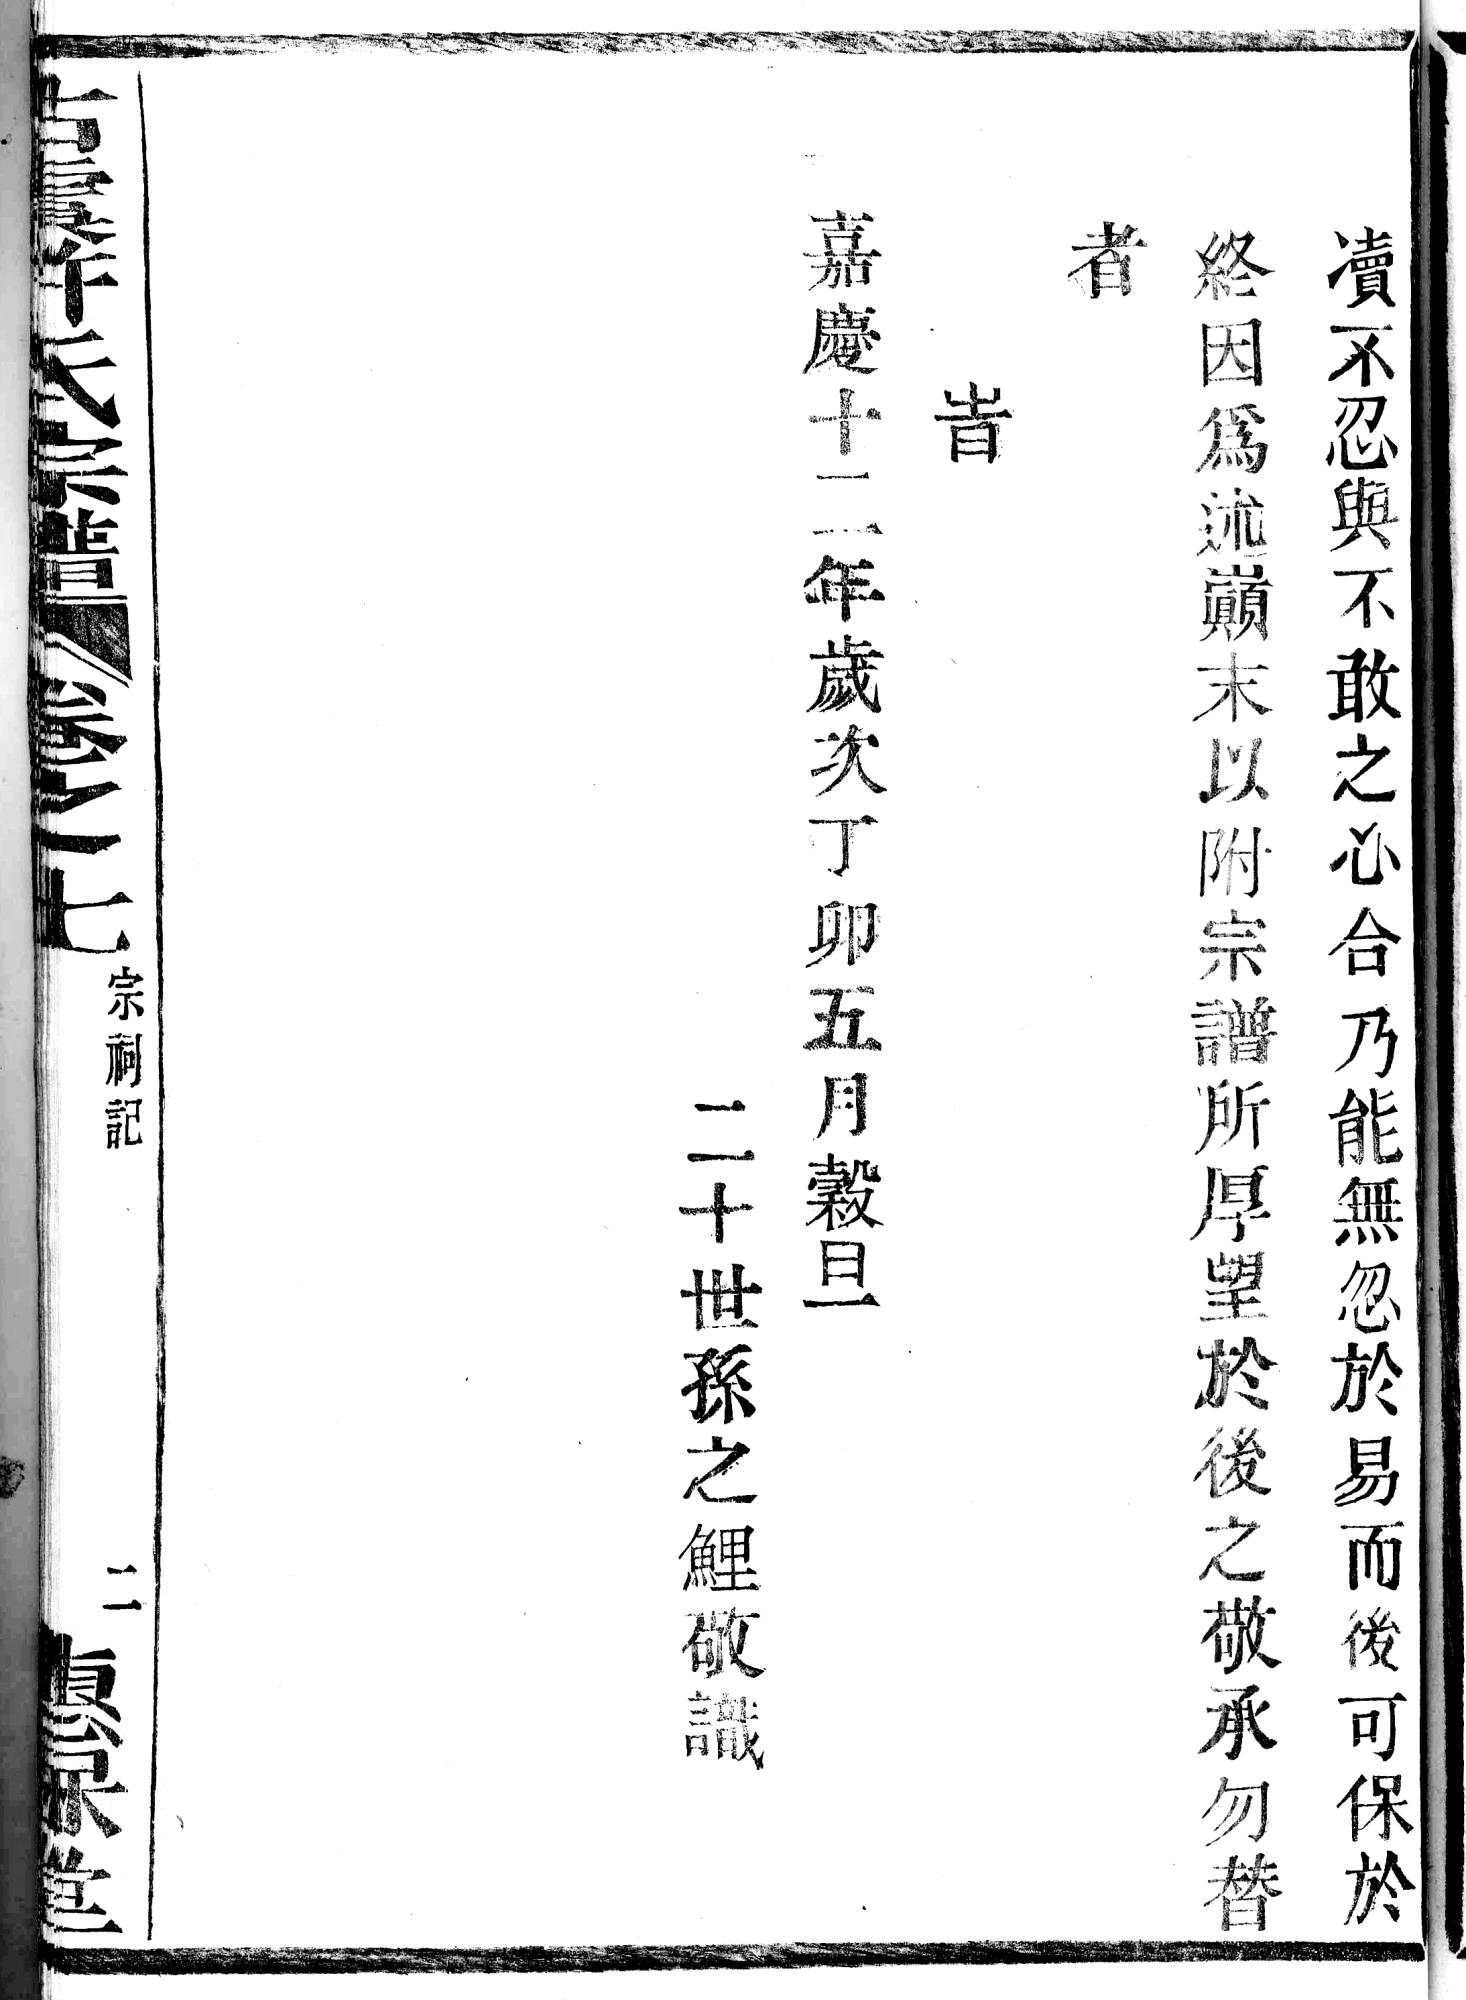 凟不忍與不敢之心合乃能無忽於易而後可保於
終因爲述巔末以附宗譜所厚望於後之敬承勿替
者
旹
嘉慶十二年歲次丁卯五月穀旦
二十世孫之鯉敬識
古虞許氏宗譜
卷之七
宗祠記
二